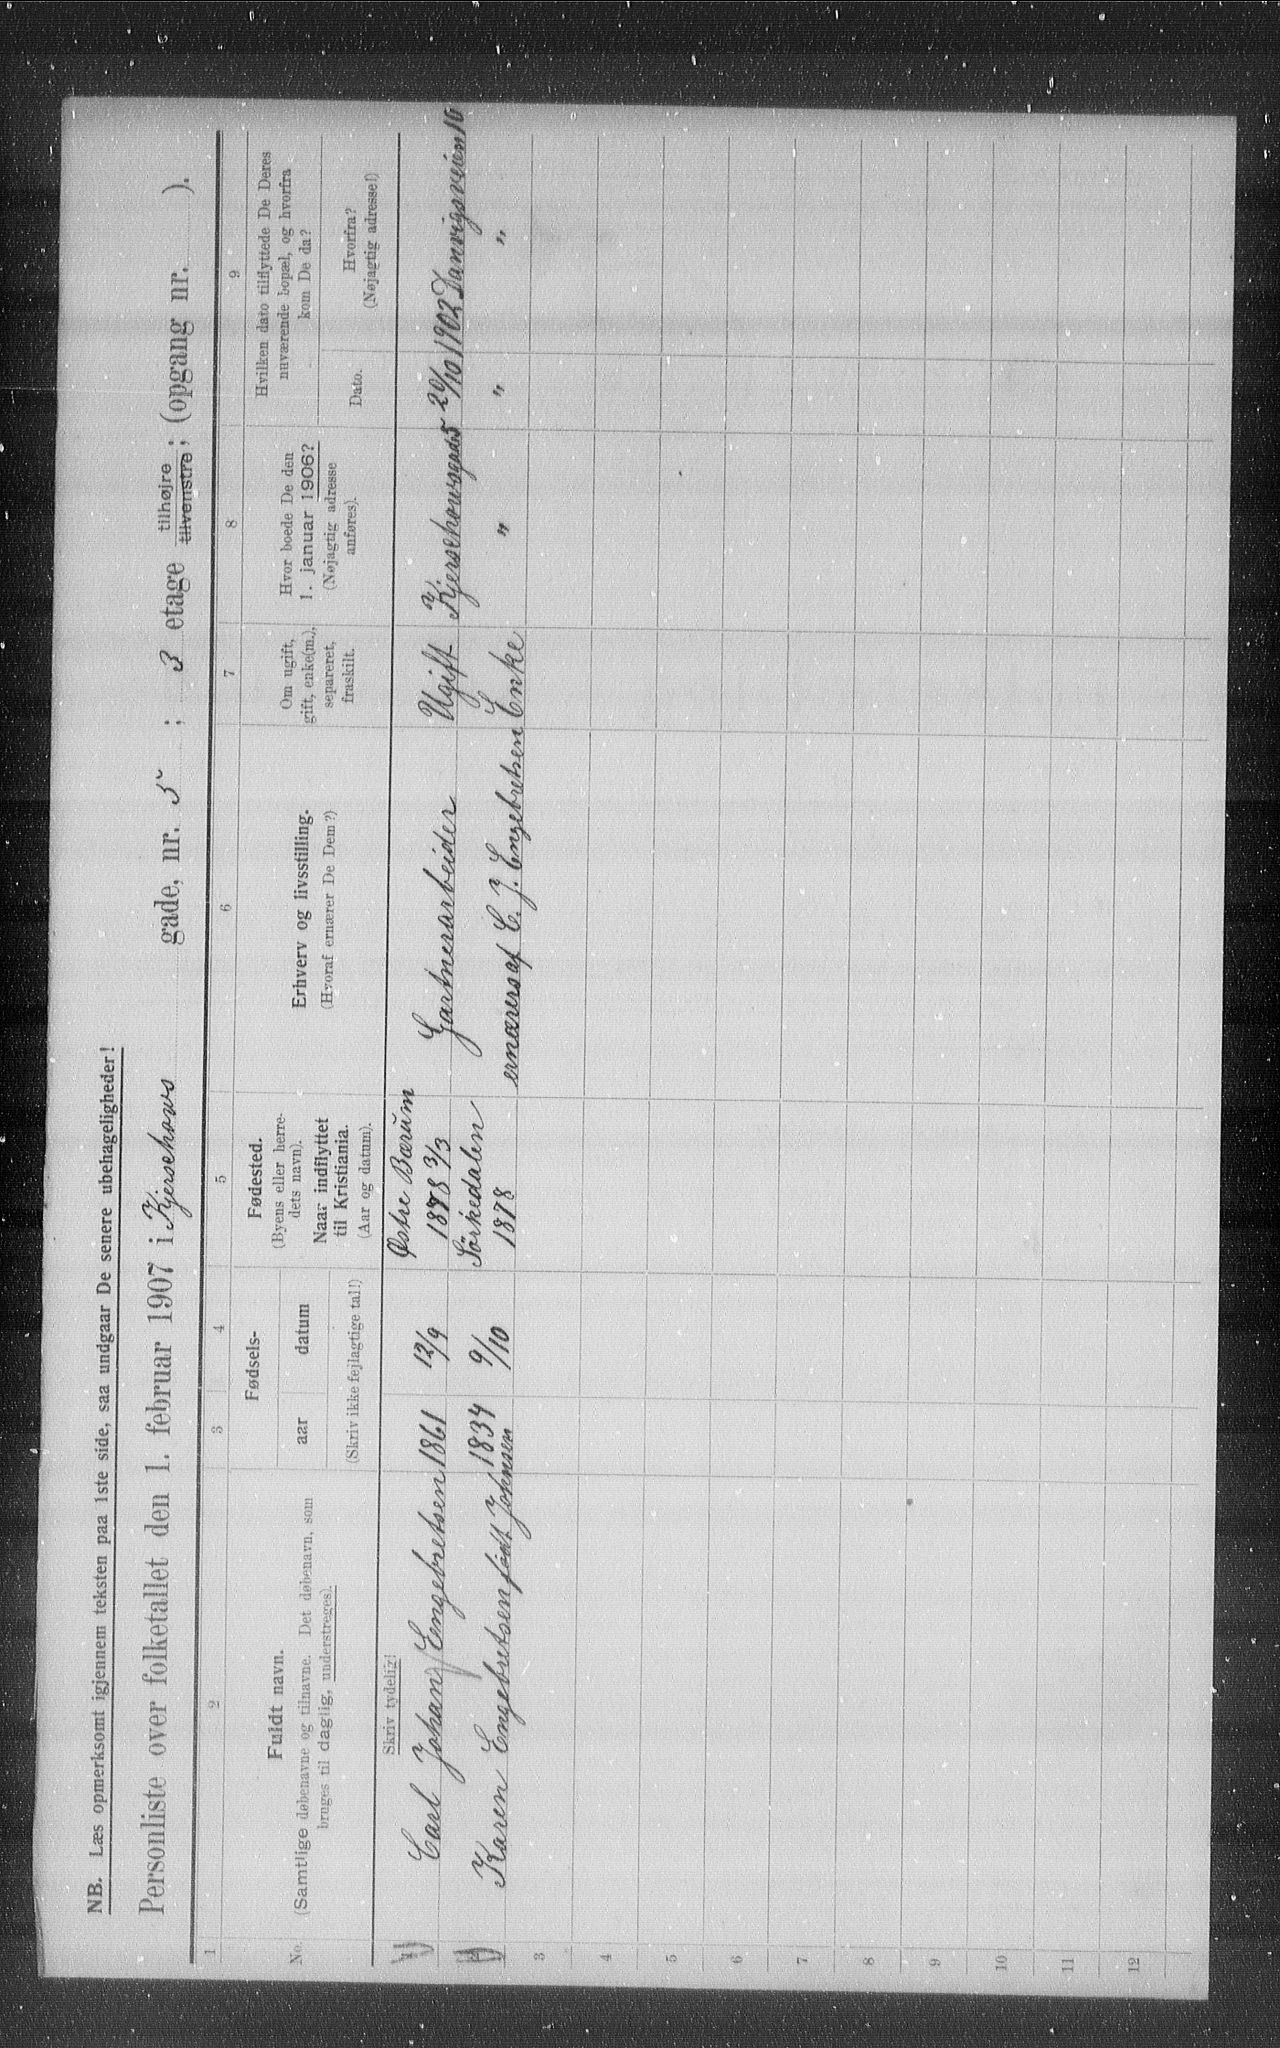 NB. Læs opmerksomt igjennem teksten paa 1ste side, saa undgaar De senere ubehageligheder!
Personliste over folketallet den 1. februar 1907 i Kjerschows gade, nr. 5 ; 3 etage tilhøjre tilvenstre; (opgang nr. ).
1 2 3 4 5 6 7 8 9
No.
Fuldt navn.
(Samtlige døbenavne og tilnavne. Det døbenavn, som
bruges til daglig, understreges).
Fødsels-
aar datum
(Skriv ikke fejlagtige tal!)
Fødested.
(Byens eller herre-
dets navn).
Naar indflyttet
til Kristiania.
(Aar og datum).
Erhverv og livsstilling.
(Hvoraf ernærer De Dem?)
Om ugift,
gift, enke(m.),
separeret,
fraskilt.
Hvor boede De den
1. januar 1906?
(Nøjagtig adresse
anføres).
Hvilken dato tilflyttede De Deres
nuværende bopæl, og hvorfra
kom De da?
Dato.
Hvorfra?
(Nøjagtig adresse!)
Skriv tydelig!
Carl Johan Engebretsen 1861 12/9 Østre Bærum 1898 3/3 Gartnerarbeider Ugift Kjerschowsgade 5 20/10 1902 Danvigsveien 10
Karen Engebretsen født Johnsen 1834 9/10 Sörkedalen 1878 ernæres af C. J. Engebretsen Enke " " "
3
4
5
6
7
8
9
10
11
12